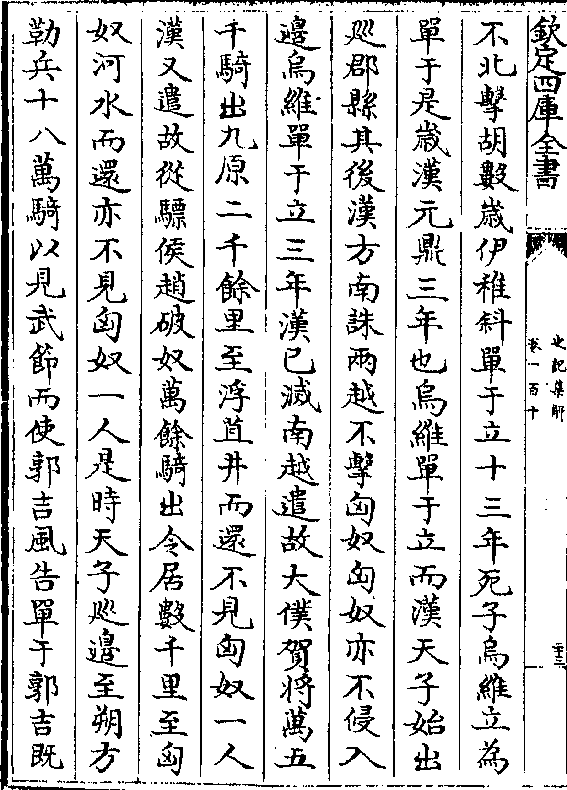 欽定四庫全書
史記集解
卷一百十
二十三
不北擊胡數歲伊稚斜單于立十三年死子烏維立為
單于是歲漢元鼎三年也烏維單于立而漢天子始出
廵郡縣其後漢方南誅兩越不擊匈奴匈奴亦不侵入
邊烏維單于立三年漢已滅南越遣故大僕賀將萬五
千騎出九原二千餘里至浮苴井而還不見匈奴一人
漢又遣故從驃侯趙破奴萬餘騎出令居數千里至匈
奴河水而還亦不見匈奴一人是時天子廵邊至朔方
勒兵十八萬騎以見武節而使郭吉風告單于郭吉既